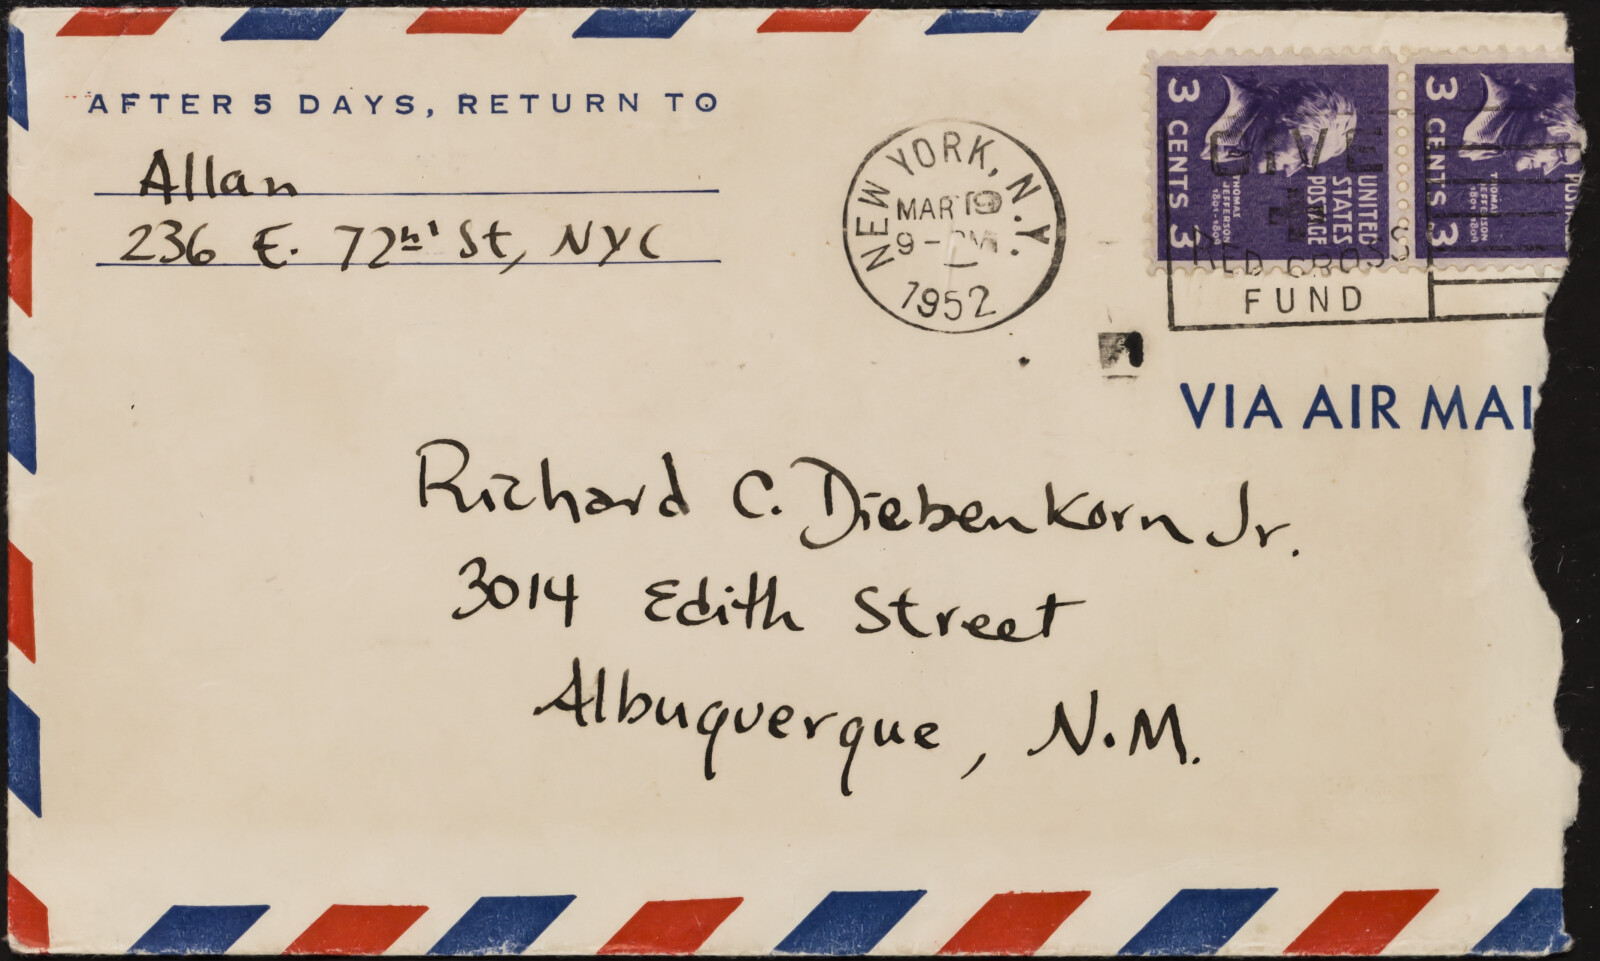 AFTER 5 DAYS, RETURN TO
Allan
236 E. 72nd St, NYC
NEW YORK, N.Y.
MAR 19
9 - PM
1952
3 CENTS 3
THOMAS JEFFERSON
1801-1809
UNITED STATES POSTAGE
3 CENTS 3
THOMAS JEFFERSON
1801-1809
GIVE
RED CROSS
FUND
VIA AIR MAI
Richard C. Diebenkorn Jr.
3014 Edith Street
Albuquerque, N.M.